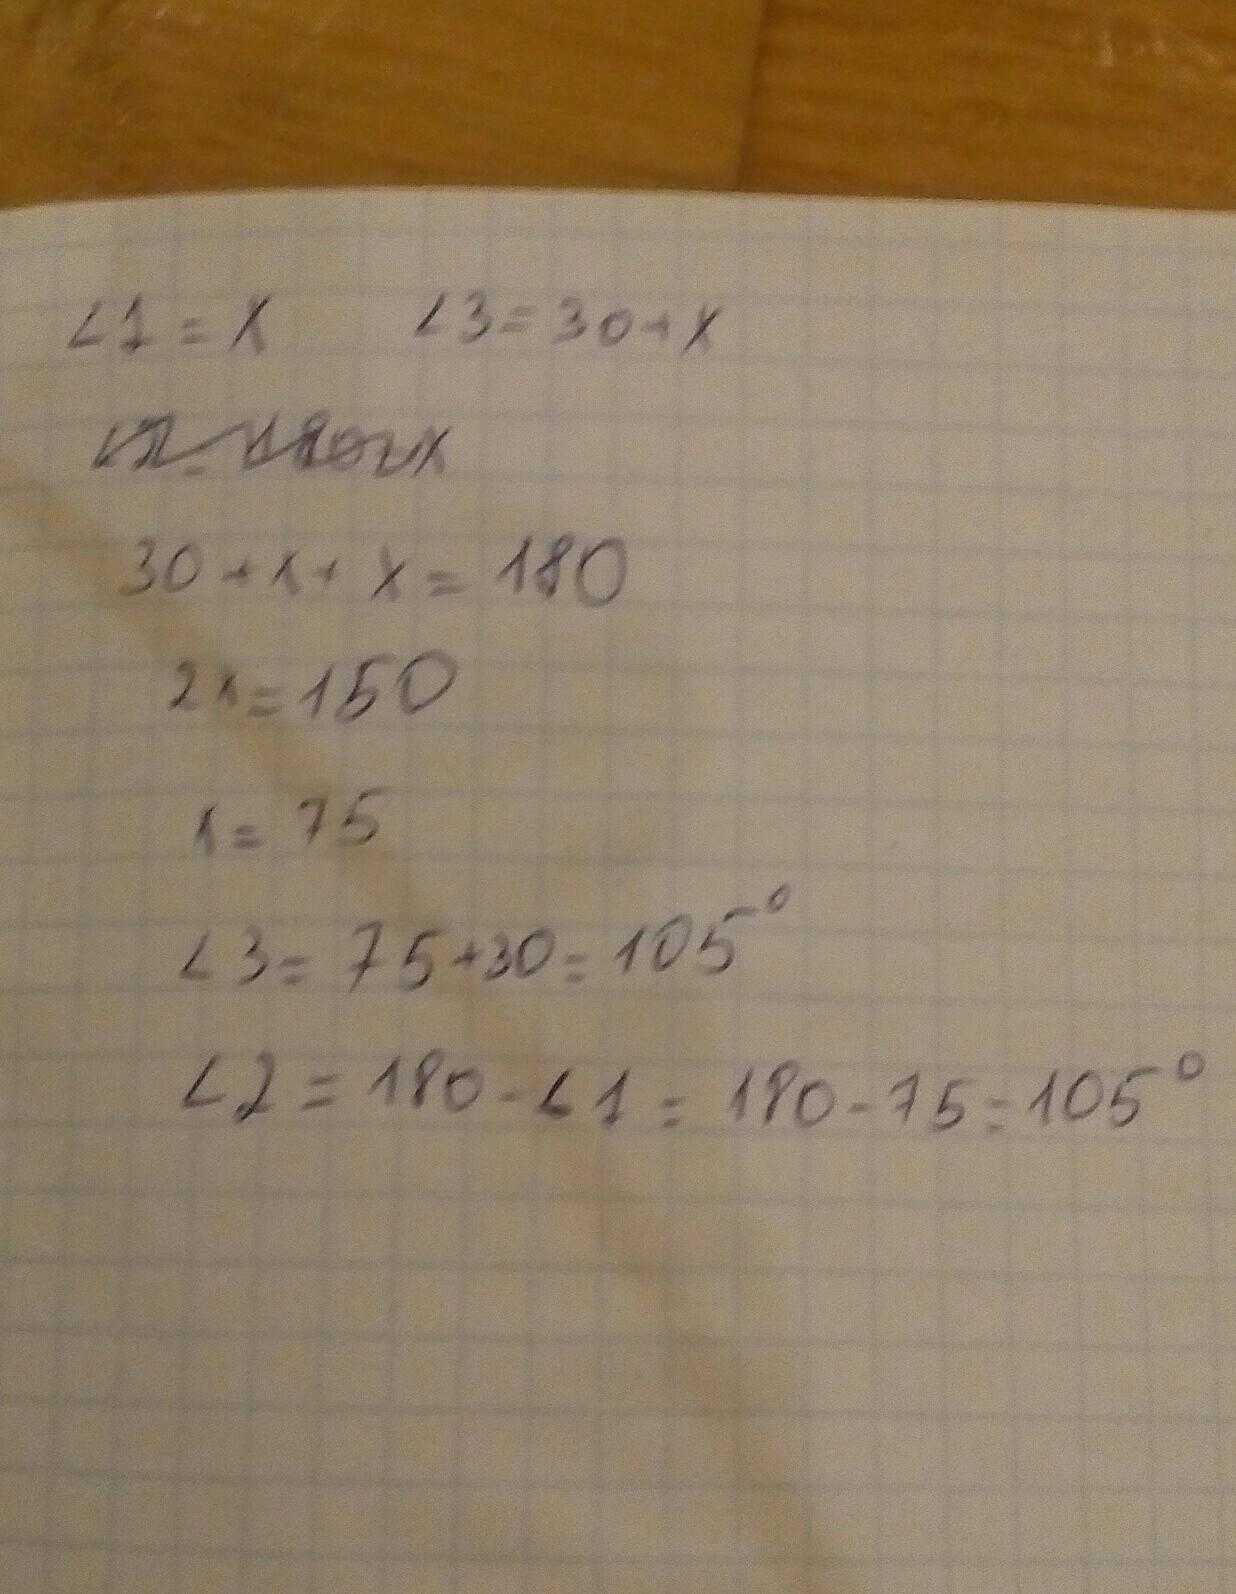 ∠1 = x ∠3 = 30 + x
30 + x + x = 180
2x = 150
x = 75
∠3 = 75 + 30 = 105°
∠2 = 180 - ∠1 = 180 - 75 = 105°